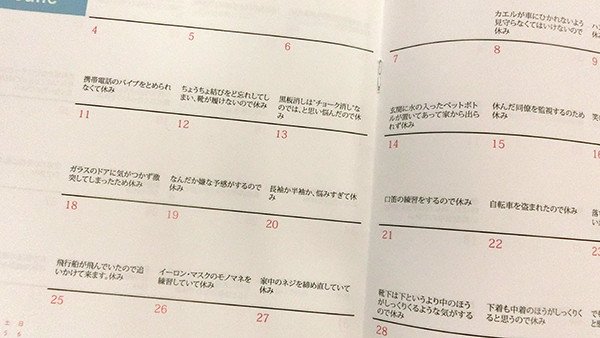 4
5
6
7
8
9
カエルが車にひかれないよう
見守らなくてはいけないので
休み
携帯電話のバイブをとめられ
なくて休み
ちょうちょ結びをど忘れしてし
まい、靴が履けないので休み
黒板消しは“チョーク消し”な
のでは、と思い悩んだので休
み
玄関に水の入ったペットボト
ルが置いてあって家から出ら
れず休み
休んだ同僚を監視するため休
み
11
12
13
14
15
16
ガラスのドアに気がつかず激
突してしまったため休み
なんだか嫌な予感がするので
休み
長袖か半袖か、悩みすぎて休
み
口笛の練習をするので休み
自転車を盗まれたので休み
18
19
20
21
22
23
飛行船が飛んでいたので追
いかけて来ます。休み
イーロン・マスクのモノマネを
練習していて休み
家中のネジを締め直していて
休み
靴下は下というより中のほう
がしっくりくるような気がする
ので休み
下着も中着のほうがしっくりく
ると思うので休み
25
26
27
28
土 日